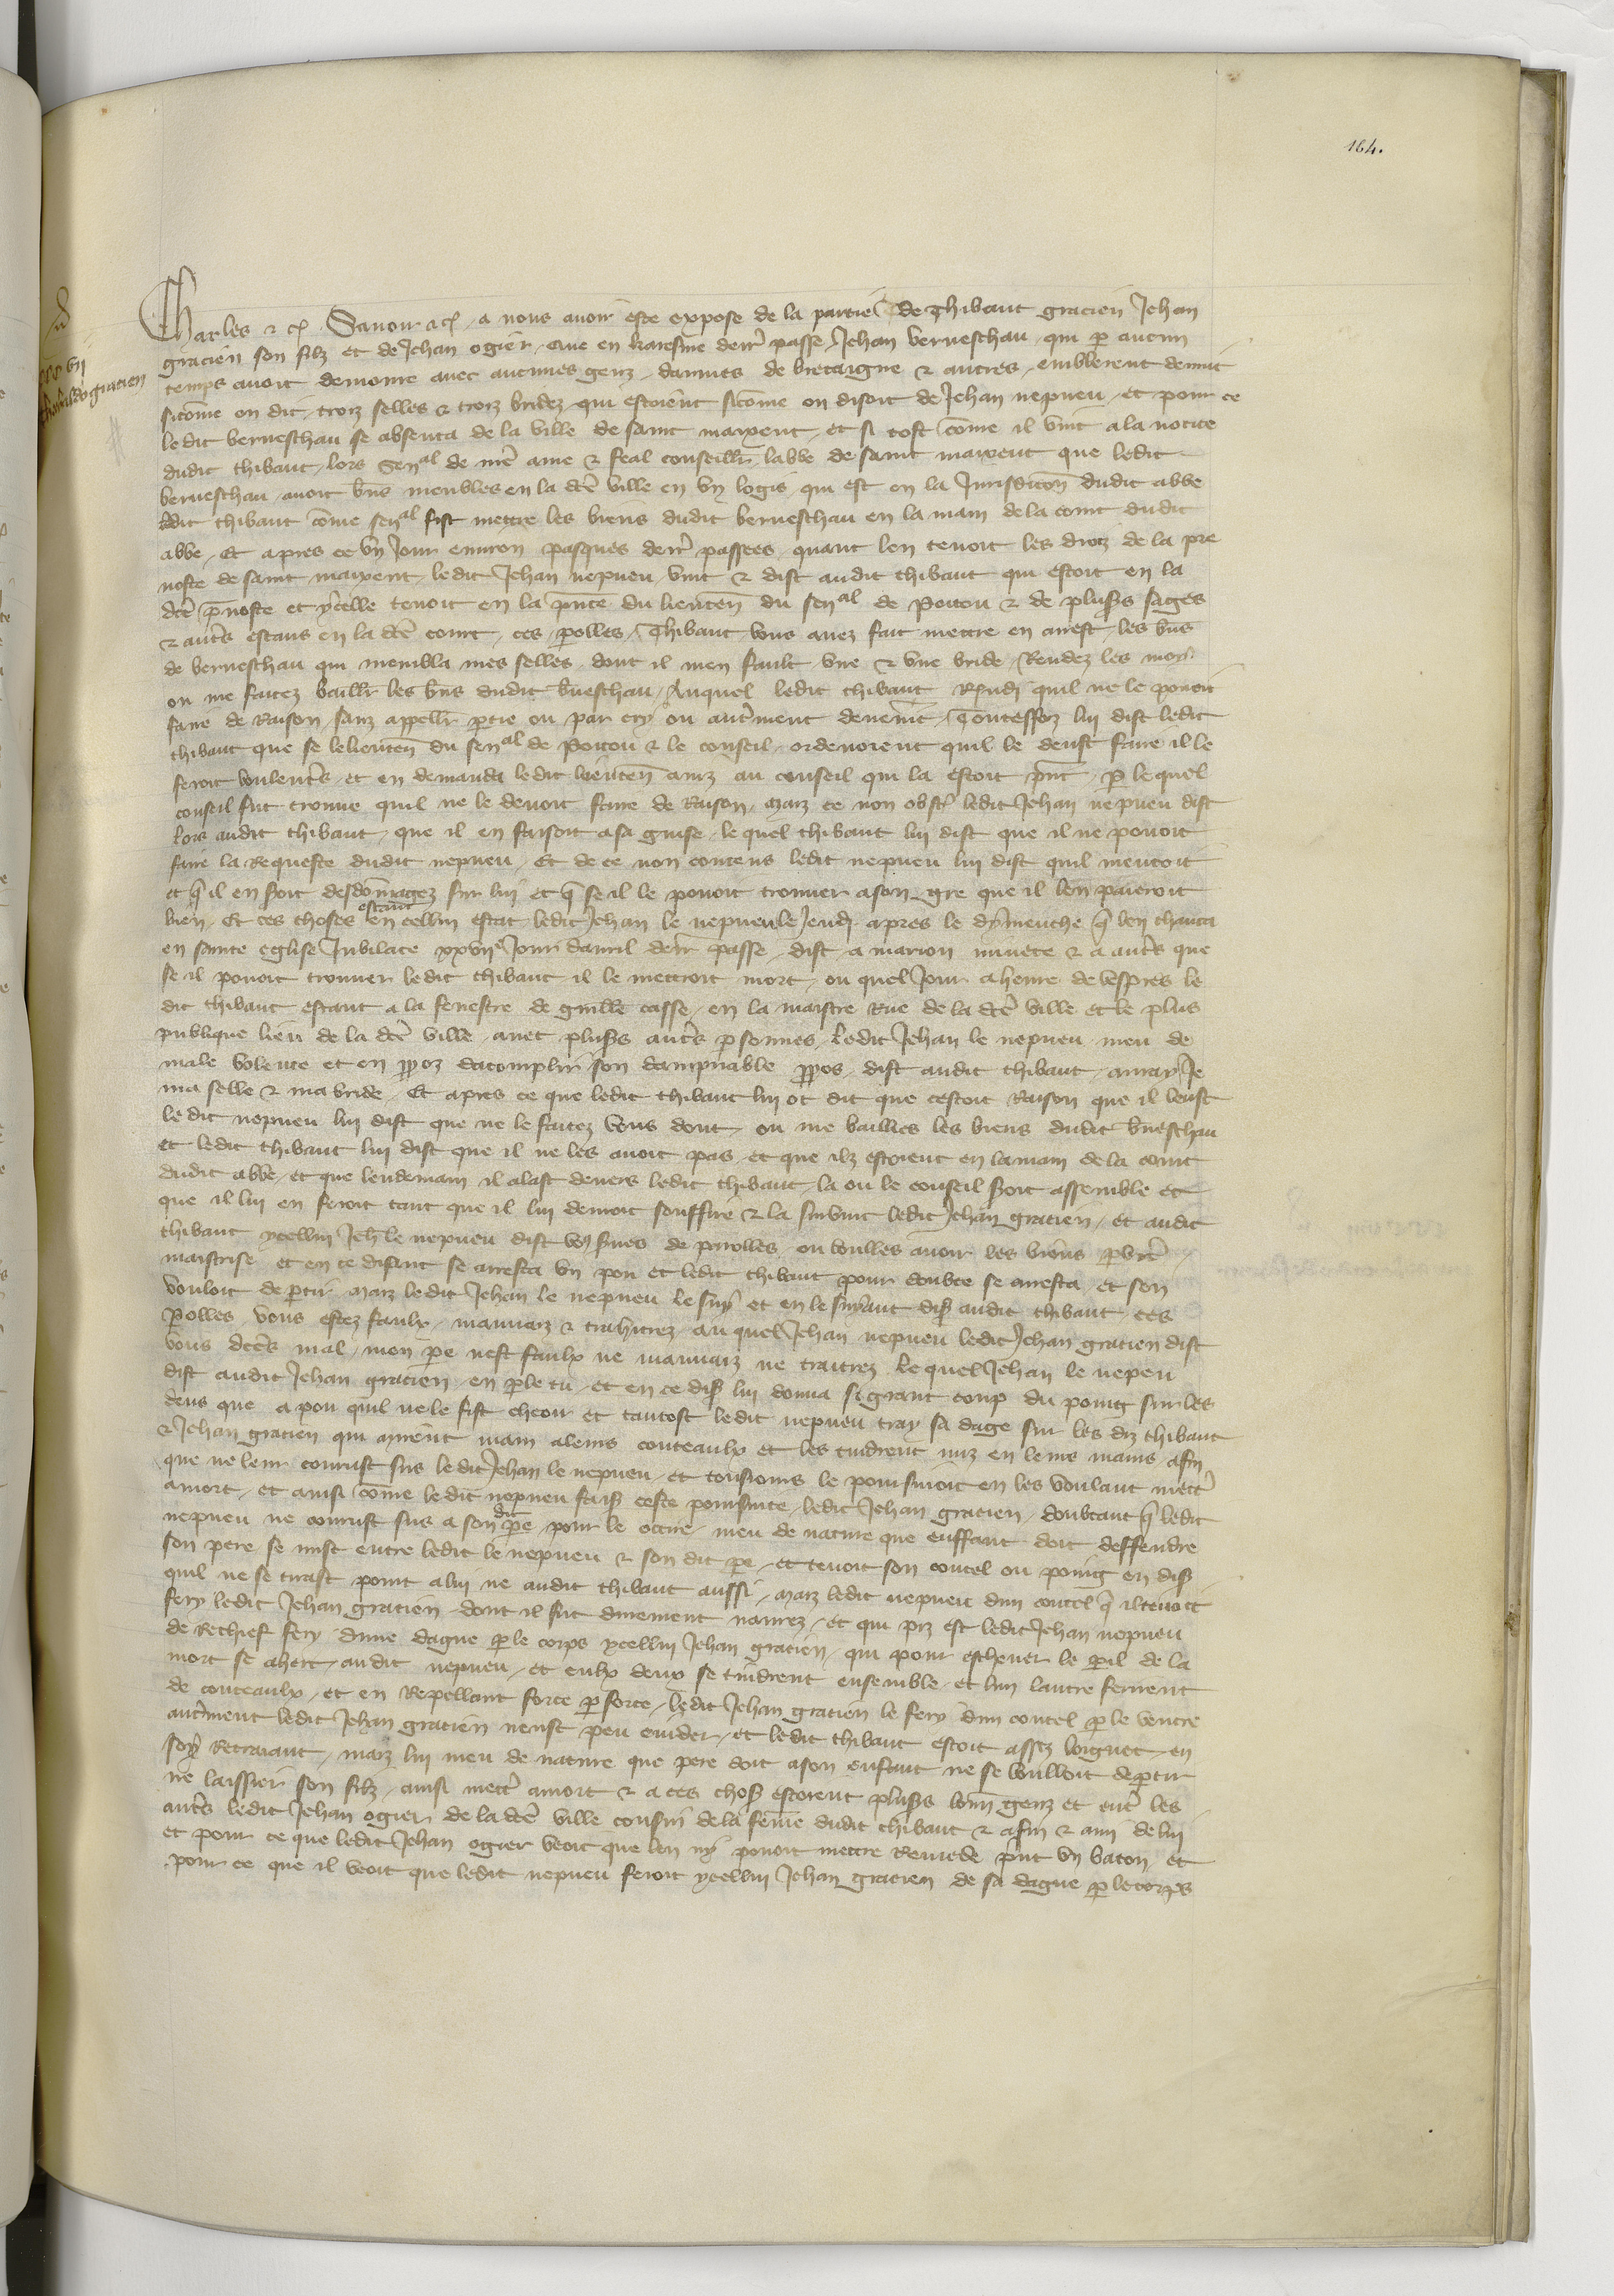 164.
Charles &c. Savoir &c. a nous avoir este expose de la partie de Thibaut gracien Jehan
gracien son filz et de Jehan ogier, que en karesme derr̄ passe, Jehan berneschau, qui p̄ aucun
temps avoit demoure avec aucunes genz darmes de bretaigne & autres, emblerent denuit
sicōme on dit, troiz selles & troiz bridez qui estoient sicōme on disoit de Jehan nepueu, et pour ce
ledit berneschau se absenta de la ville de saint maixent, et si tost cōme il vint a la notice
dudit thibaut, lors Senal de n̄re ame & feal conseillr̄ labbe de saint maixent que ledit
berneschau avoit b̄ns meubles en la dc̄e ville en vn logis, qui est en la Jurisdicōn dudit abbe
ledit thibaut cōme senal fist mettre les biens dudit berneschau en la main de la court dudit
abbe, Et apres ce vn Jour environ pasques derr̄ passees, quant len tenoit les droiz de la pre
voste de saint maixent, ledit Jehan nepueu vint & dist audit thibaut qui estoit en la
dc̄e p̄voste et ycelle tenoit en la p̄nce du lieuten̄ du senal de Poitou & de plus̄s sages
& aut̄s estans en la dc̄e court, ces p̄olles, Thibaut vous avez fait mettre en arrest les b̄ns
de berneschau qui membla mes selles, dont il men fault vne & vne bride, Rendez les moy
ou me faitez baillr̄ les b̄ns dudit b̄neschau, Auquel ledit thibaut Respōdi quil ne le povoit
faire de Raison, sanz appellr̄ p̄tie ou par cry ou aut̄ment deuem̄t, Toutesfoiz lui dist ledit
thibaut que se le lieuten̄ du senal de Poitou & le conseil ordenoient quil le deust faire il le
feroit voulent̄s, et en demanda ledit lieuten̄ aviz au conseil qui la estoit p̄nt, p̄ le quel
conseil fut trouve quil ne le devoit faire de Raison, maiz ce non obst̄ ledit Jehan nepueu dist
lors audit thibaut, que il en faisoit a sa guise, le quel thibaut lui dist que il ne povoit
faire la Requeste dudit nepueu, Et de ce non contens ledit nepueu lui dist quil mentoit
et q̄ il en s̄oit desdōmagez sur lui et q̄ se il le povoit trouver a son gre que il len paieroit
bien, Et ces choses estant en cellui estat ledit Jehan le nepueu le Jeudi apres le dymenche q̄ len chanta
en sainte eglise Jubilate xxvije Jour davril derr̄ passe, dist a marion mivete & a aut̄s que
se il povoit trouver ledit thibaut il le mettroit mort, ou quel Jour a heure de vespres le
dit thibaut estant a la fenestre de guille casse, en la maistre Rue de la dc̄e ville et le plus
publique lieu de la dc̄e ville, avec plus̄s aut̄s p̄sonnes, Ledit Jehan le nepueu meu de
male volente et en p̄poz dacomplir son dampnable p̄pos, dist audit thibaut, auray Je
ma selle & ma bride, Et apres ce que ledit thibaut lui ot dit que cestoit Raison que il leust
ledit nepueu lui dist que ne le faitez vous dont, ou me bailles les biens dudit b̄neschau
et ledit thibaut lui dist que il ne les avoit pas, et que ilz estoient en la main de la court
dudit abbe, et que lendemain il alast devers ledit thibaut, la ou le conseil s̄oit assemble et
que il lui en feroit tant que il lui devroit souffire & la survint ledit Jehan gracien, et audit
thibaut ycellui Jeh̄ le nepueu dist vo s̄ves de parolles, ou voulles avoir les biens p̄ v̄re
maistrise et en ce disant se arresta vn pou et ledit thibaut pour doubte se arresta, et son
vouloit dep̄tir, maiz ledit Jehan le nepueu le suy et en le suyvant dis̄ audit thibaut ces
p̄olles vous estez faulx, mauvaiz & trahitrez, au quel Jehan nepueu ledit Jehan gracien dist
vous dc̄es mal, mon p̄e nest faulx ne mauvaiz ne traitrez, Le quel Jehan le nepeu
dist audit Jehan gracien, en p̄le tu, et en ce dis̄ lui donna si grant coup du poing sur les
dens que a pou quil ne le fist cheoir et tantost ledit nepueu tray sa dage sur les diz thibaut
& Jehan gracien qui mirent main a leurs couteaulx et les tindrent nuz en leurs mains, afin
que ne leur courust sus ledit Jehan le nepueu, et tousiours le poursuivoit en les voulant mett̄
a mort, et ainsi cōme ledit nepueu fais̄ ceste poursuite, ledit Jehan gracien, doubtant q̄ ledit
nepueu ne courust sus a son dit p̄e, pour le occire, meu de nature que enffant doit deffendre
son pere, se mist entre ledit le nepueu & son dit p̄e, et tenoit son coutel ou poing en dis̄
quil ne se tirast point a lui ne audit thibaut aussi, maiz ledit nepueu dun coutel q̄ il tenoit
fery ledit Jehan gracien, dont il fut durement navrez, et qui piz est ledit Jehan nepueu
de Rechief fery dune dague p̄ le corps ycellui Jehan gracien, qui pour eschever le p̄il de la
mort se ahert audit nepueu, et eulx deux se tindrent ensemble, et lun lautre ferirent
de couteaulx, et en Repellant force p̄ force, ledit Jehan gracien le fery dun coutel p̄ le ventre
aut̄ment ledit Jehan gracien neust peu evider, et ledit thibaut estoit assez loignet, en
soy Retraiant, maiz lui meu de nature que pere doit a son enfant ne se vouloit dep̄tir
ne laissier son filz, ainsi mett̄ a mort & a ces chos̄ estoient plus̄s bōn genz et ent̄ les
aut̄s ledit Jehan ogier de la dc̄e ville cousin de la fem̄e dudit thibaut & afin & ami de lui
et pour ce que ledit Jehan ogier veoit que len ny povoit mettre Remede, p̄nt vn baton, et
pour ce que il veoit que ledit nepueu feroit ycellui Jehan gracien de sa dague p̄ le corps